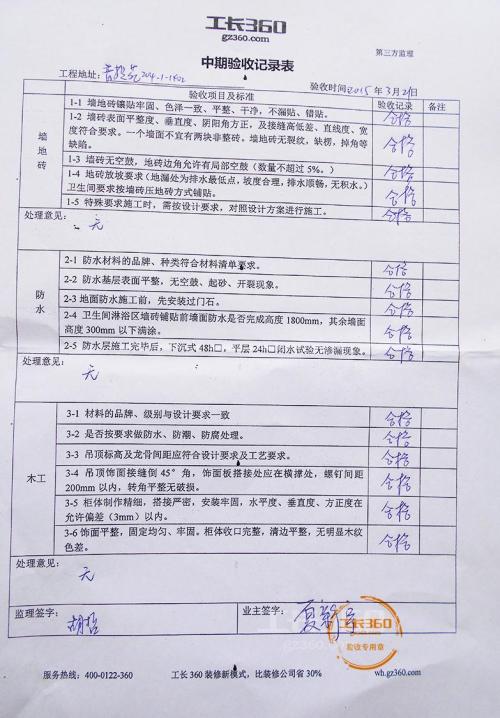 工长360
gz360.com
第三方监理
中期验收记录表
工程地址: 204-1-1402
验收时间 2015年3月21日
验收项目及标准 验收记录 备注
墙地砖
1-1 墙地砖镶贴牢固、色泽一致、平整、干净,不漏贴、错贴。 合格
1-2 墙砖表面平整度、垂直度、阴阳角方正,及接缝高低差、直线度、宽
度符合要求。一个墙面不宜有两块非整砖。墙地砖无裂纹,缺楞,掉角等 合格
缺陷。
1-3 墙砖无空鼓,地砖边角允许有局部空鼓(数量不超过 5%。) 合格
1-4 地砖放坡要求(地漏处为排水最低点,坡度合理,排水顺畅,无积水。)
卫生间要求按墙砖压地砖方式铺贴。 合格
1-5 特殊要求施工时,需按设计要求,对照设计方案进行施工。 合格
处理意见:
无
防水
2-1 防水材料的品牌、种类符合材料清单要求。 合格
2-2 防水基层表面平整,无空鼓、起砂、开裂现象。 合格
2-3 地面防水施工前,先安装过门石。 合格
2-4 卫生间淋浴区墙砖铺贴前墙面防水是否完成高度 1800mm,其余墙面
高度 300mm 以下满涂。 合格
2-5 防水层施工完毕后,下沉式 48h□,平层 24h□闭水试验无渗漏现象。 合格
处理意见:
无
木工
3-1 材料的品牌、级别与设计要求一致 合格
3-2 是否按要求做防水、防潮、防腐处理。 合格
3-3 吊顶标高及龙骨间距应符合设计要求及工艺要求。 合格
3-4 吊顶饰面接缝倒 45°角,饰面板搭接处应在横撑处,螺钉间距
200mm 以内,转角平整无破损。 合格
3-5 柜体制作精细,搭接严密,安装牢固,水平度、垂直度、方正度在
允许偏差(3mm)以内。 合格
3-6 饰面平整,固定均匀、牢固。柜体收口完整,清边平整,无明显木纹
色差。 合格
处理意见:
无
监理签字: 胡哲
业主签字:
工长360
验收专用章
服务热线:400-0122-360
工长 360 装修新模式,比装修公司省 30%
wh.gz360.com